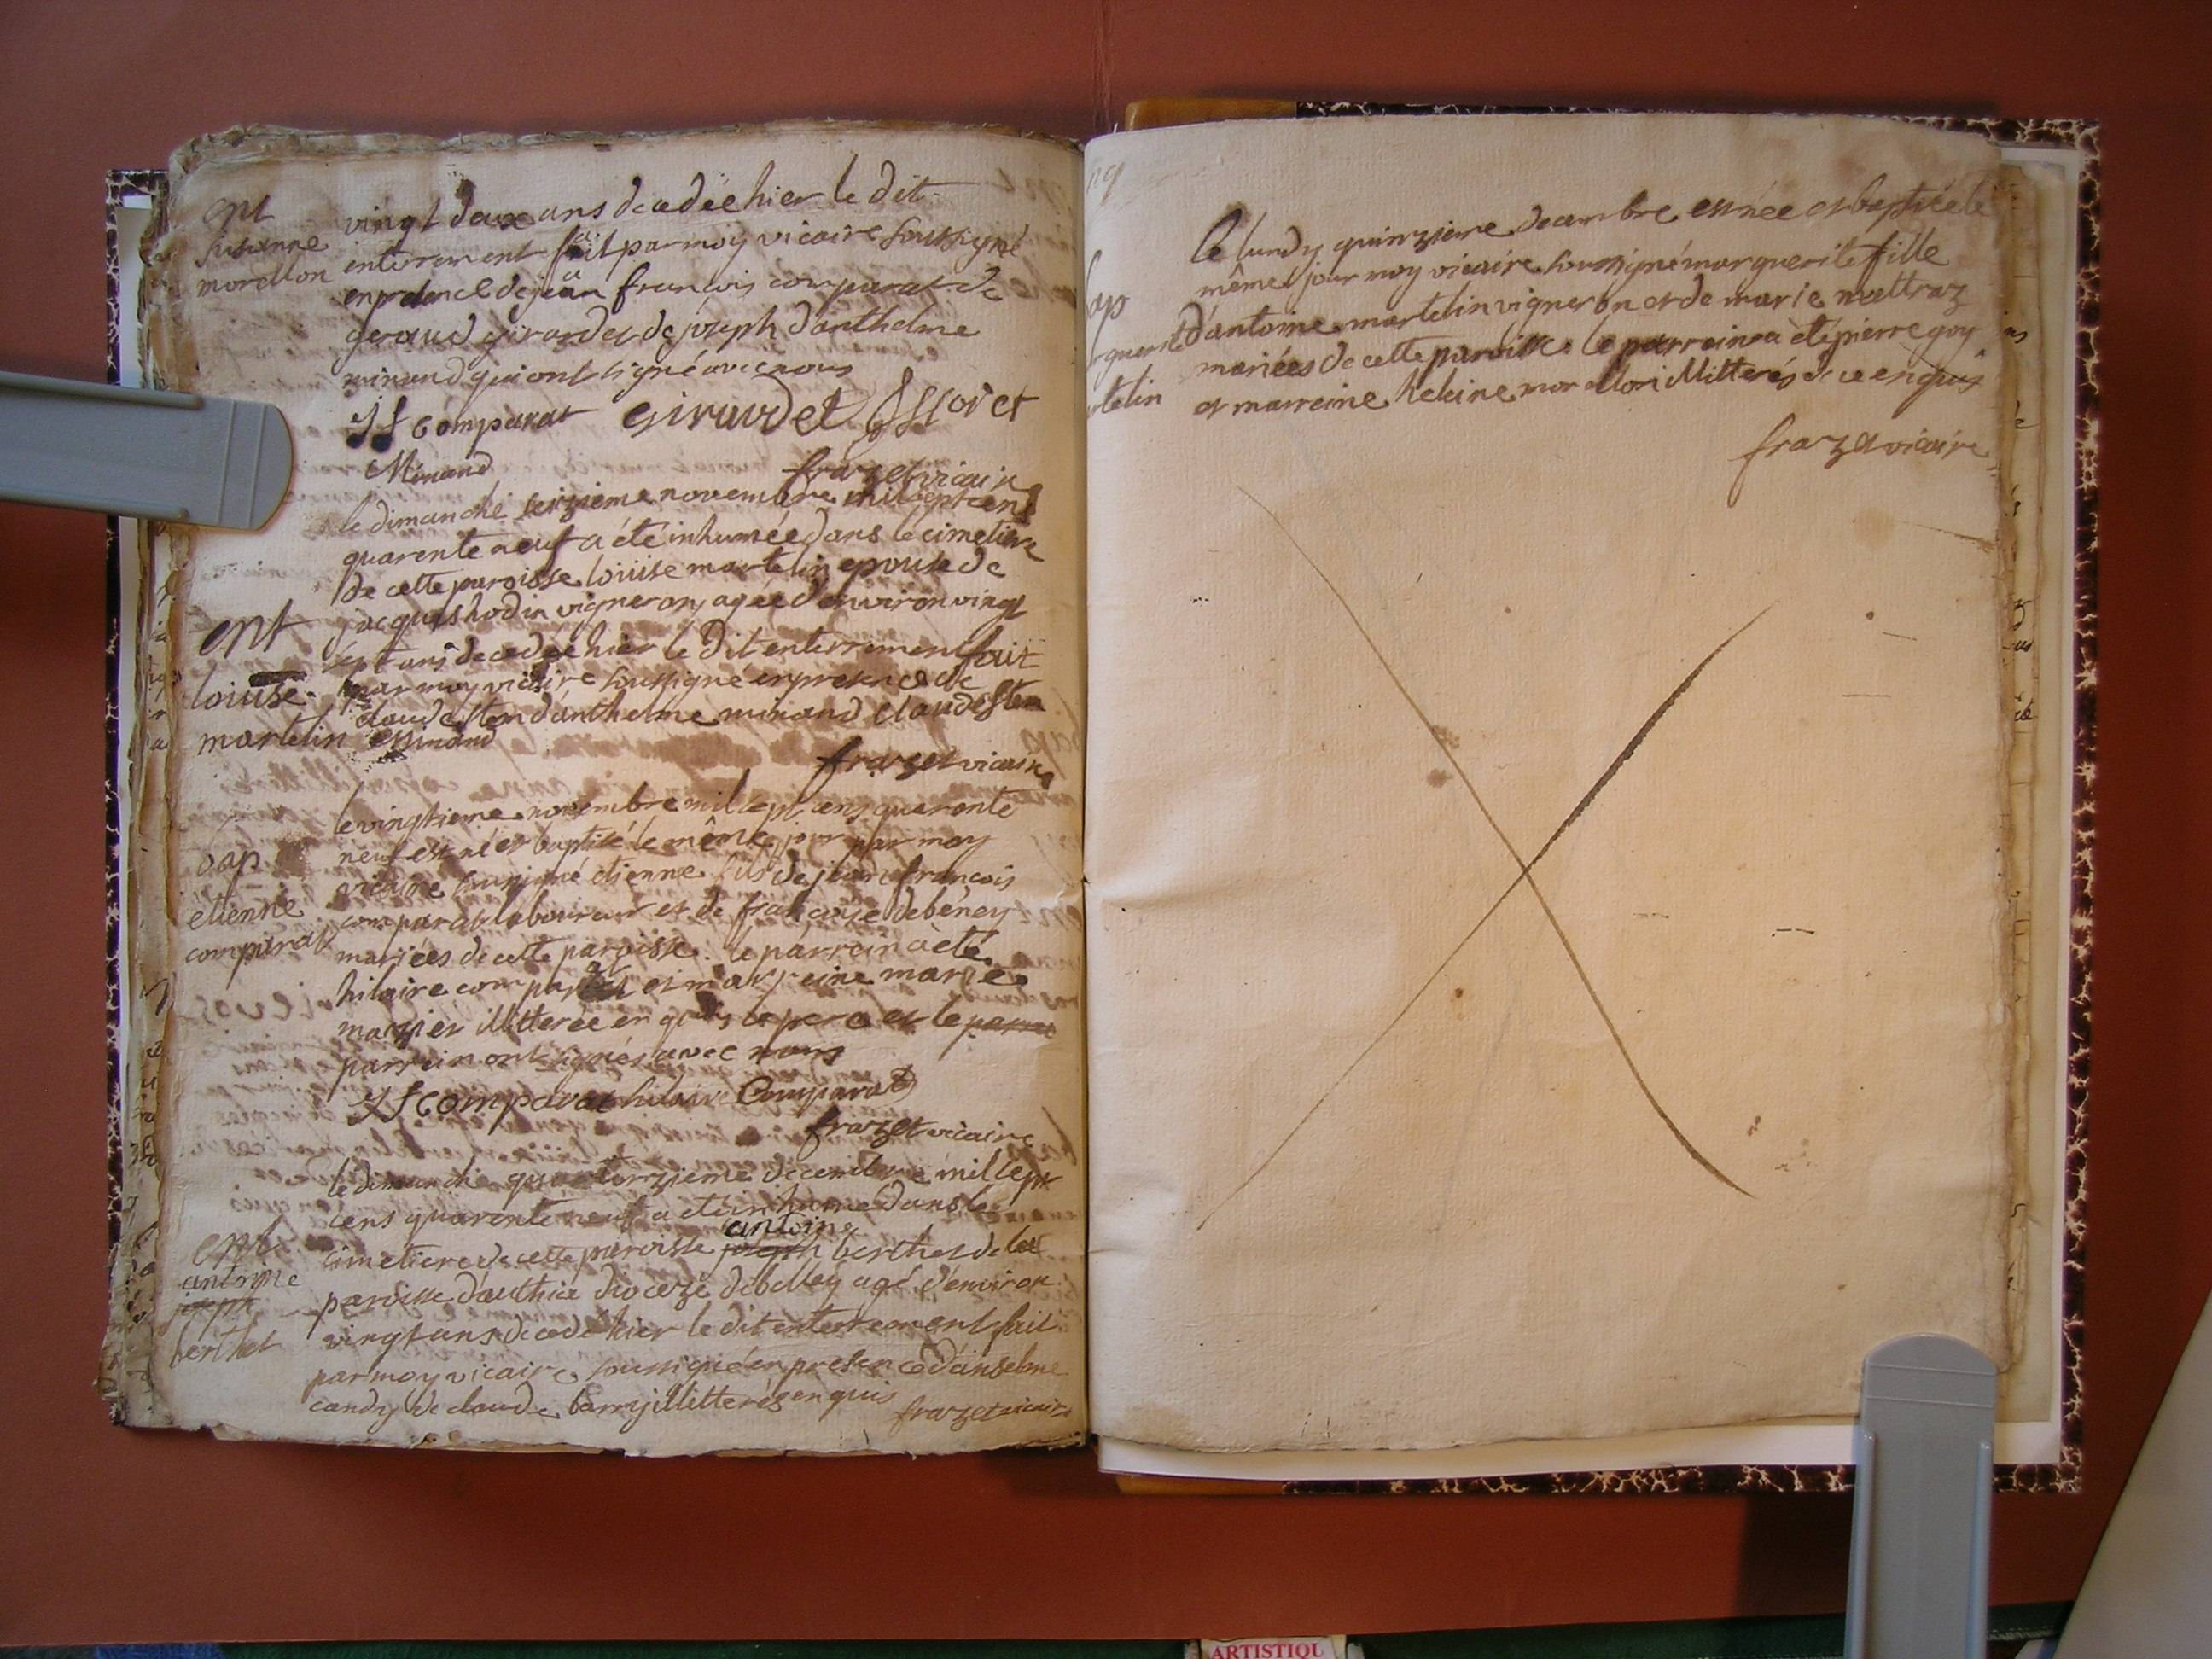 ent
susanne
morellon
vingt deux ans decedée hier le dit
enterrement fait par moy vicaire soussigné
en presence de jean francois comparat de
geraud girardet de joseph d'anthelme
minand qui ont signé avec nous
JF comparat Giraudet
Minand
frazet vicaire
le dimanche seizieme novembre mil sept cens
quarente neuf a été inhumée dans le cimetiere
de cette paroisse loiiise martelin epouse de
jacques hodin vigneron agée d'environ vingt
ent
loiiise
martelin
sept ans decedée hier le dit enterrement fait
par moy vicaire soussigné en presence de
claude sten d'anthelme minand claude sten
Minand
frazet vicaire
bap
etienne
comparat
le vingtieme novembre mil sept cens quarente
neuf est né et baptisé le même jour par moy
vicaire soussigné etienne fils de jean francois
comparat laboureur et de francoise debeney
mariées de cette paroisse. le parrein a été
hilaire comparat et marreine marie
mazier illitterée enquis le pere et le parre
parrein ont signés avec nous
JF comparat hilaire Comparat
frazet vicaire
le dimanche quatorzieme decembre mil sept
cens quarente neuf a été inhumé dans le
ent
antoine
joseph
berthet
cimetiere de cette paroisse joseph antoine berthet de la
paroisse d'authia dioceze de belley agé d'environ
vingt ans decedé hier le dit enterrement fait
par moy vicaire soussigné en presence d'anselme
candy de claude barry illitterés enquis
frazet vicaire
bap
martelin
le lundy quinzieme decembre est née et baptisée le
même jour moy vicaire soussigné marguerite fille
d'antoine martelin vigneron et de marie mettraz
mariées de cette paroisse le parrein a été pierre goy
et marreine heleine morellon illitterés de ce enquis
frazet vicaire
ARTISTIQU